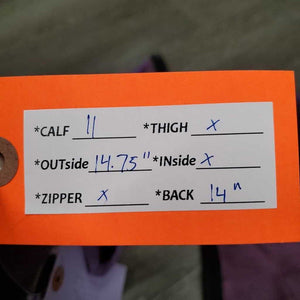 *CALF 11 *THIGH x
*OUTside 14.75" *INside x
*ZIPPER x *BACK 14"